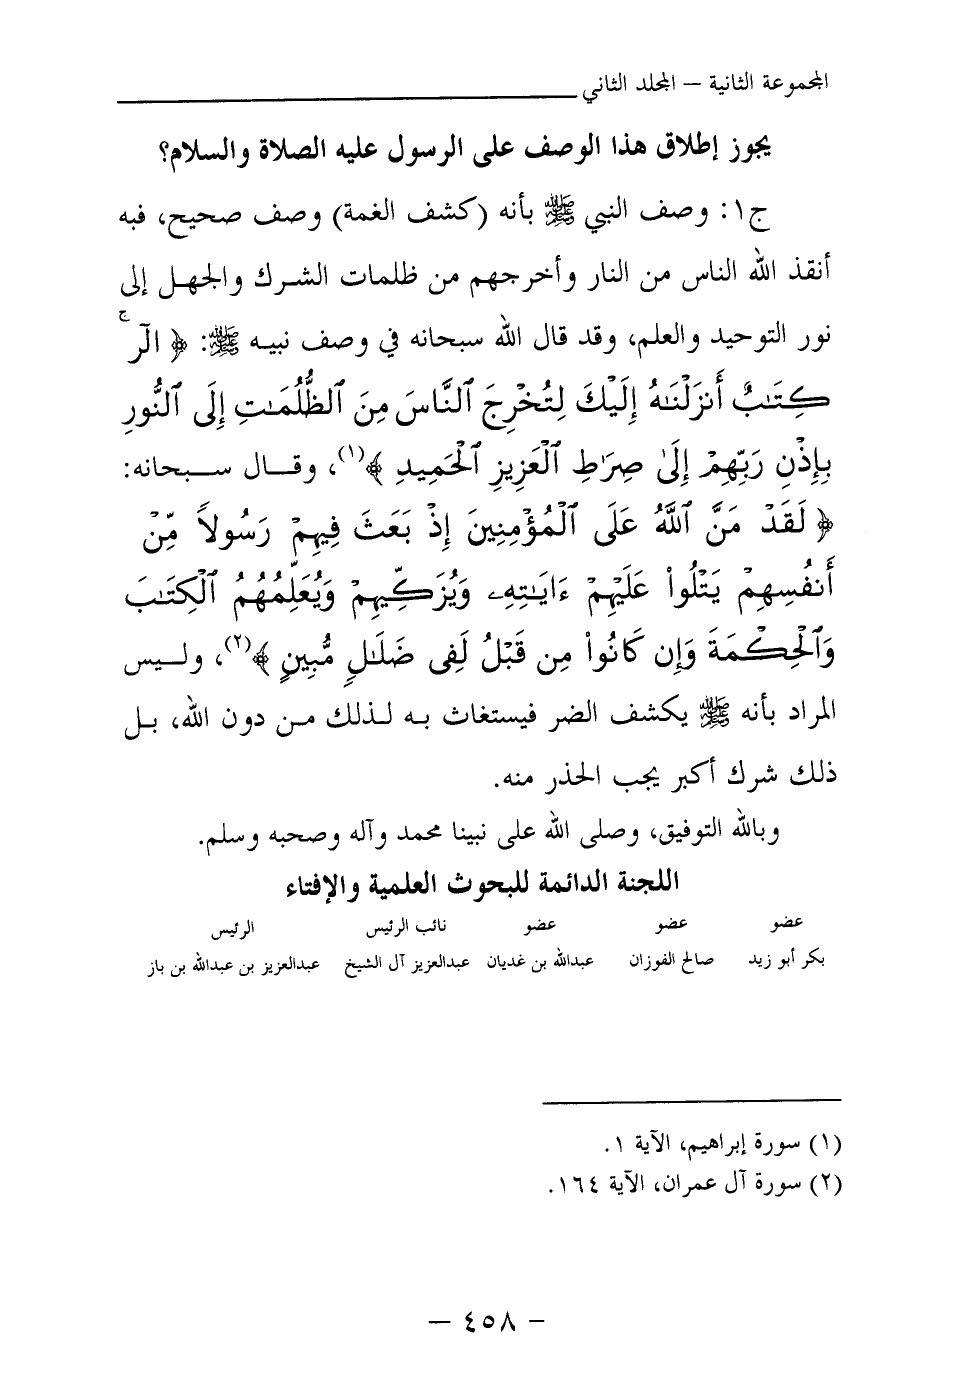 المجموعة الثانية – المجلد الثاني
يجوز إطلاق هذا الوصف على الرسول عليه الصلاة والسلام؟
ج١: وصف النبي ﷺ بأنه (كشف الغمة) وصف صحيح، فبه
أنقذ الله الناس من النار وأخرجهم من ظلمات الشرك والجهل إلى
نور التوحيد والعلم، وقد قال الله سبحانه في وصف نبيه ﷺ: ﴿ الٓر ۚ
كِتَٰبٌ أَنزَلْنَٰهُ إِلَيْكَ لِتُخْرِجَ ٱلنَّاسَ مِنَ ٱلظُّلُمَٰتِ إِلَى ٱلنُّورِ
بِإِذْنِ رَبِّهِمْ إِلَىٰ صِرَٰطِ ٱلْعَزِيزِ ٱلْحَمِيدِ ﴾(١)، وقال سبحانه:
﴿ لَقَدْ مَنَّ ٱللَّهُ عَلَى ٱلْمُؤْمِنِينَ إِذْ بَعَثَ فِيهِمْ رَسُولاً مِّنْ
أَنفُسِهِمْ يَتْلُواْ عَلَيْهِمْ ءَايَٰتِهِۦ وَيُزَكِّيهِمْ وَيُعَلِّمُهُمُ ٱلْكِتَٰبَ
وَٱلْحِكْمَةَ وَإِن كَانُواْ مِن قَبْلُ لَفِى ضَلَٰلٍ مُّبِينٍ ﴾(٢)، وليس
المراد بأنه ﷺ يكشف الضر فيستغاث به لذلك من دون الله، بل
ذلك شرك أكبر يجب الحذر منه.
وبالله التوفيق، وصلى الله على نبينا محمد وآله وصحبه وسلم.
اللجنة الدائمة للبحوث العلمية والإفتاء
عضو عضو عضو نائب الرئيس الرئيس
بكر أبو زيد صالح الفوزان عبدالله بن غديان عبدالعزيز آل الشيخ عبدالعزيز بن عبدالله بن باز
(١) سورة إبراهيم، الآية ١.
(٢) سورة آل عمران، الآية ١٦٤.
– ٤٥٨ –